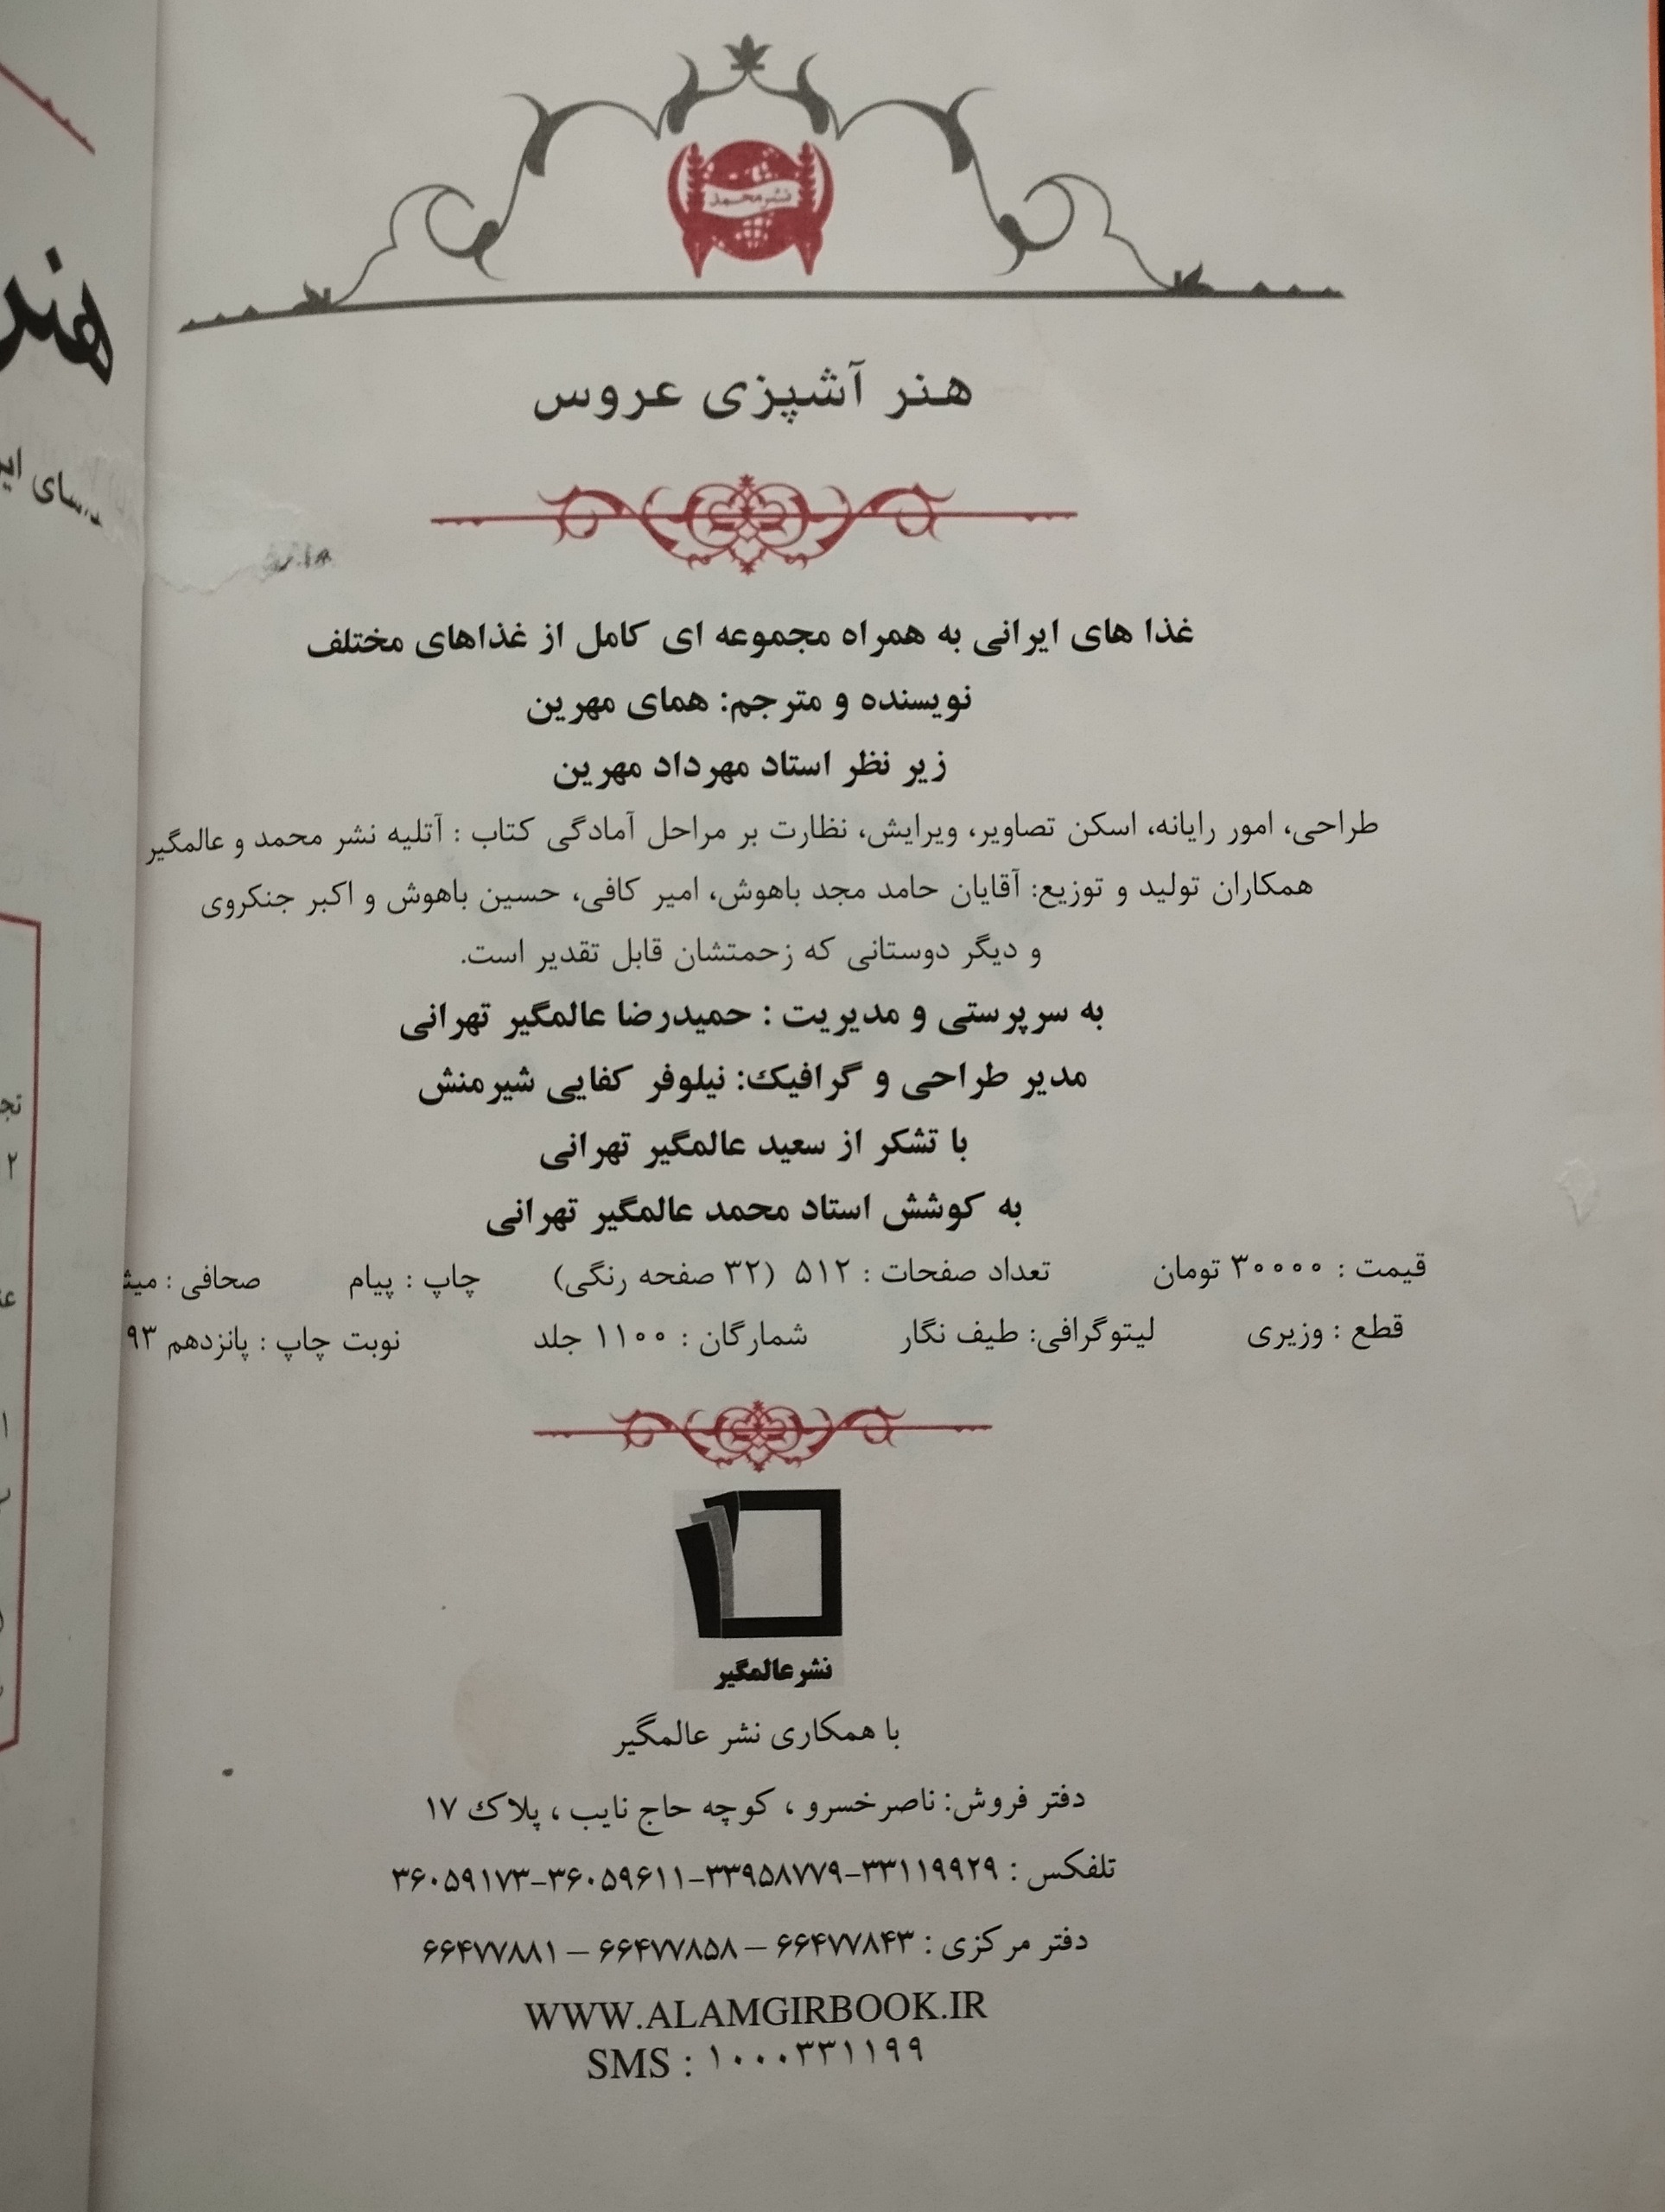 نشر محمد
هنر آشپزی عروس
غذا های ایرانی به همراه مجموعه ای کامل از غذاهای مختلف
نویسنده و مترجم: همای مهرین
زیر نظر استاد مهرداد مهرین
طراحی، امور رایانه، اسکن تصاویر، ویرایش، نظارت بر مراحل آمادگی کتاب : آتلیه نشر محمد و عالمگیر
همکاران تولید و توزیع: آقایان حامد مجد باهوش، امیر کافی، حسین باهوش و اکبر جنکروی
و دیگر دوستانی که زحمتشان قابل تقدیر است.
به سرپرستی و مدیریت : حمیدرضا عالمگیر تهرانی
مدیر طراحی و گرافیک: نیلوفر کفایی شیرمنش
با تشکر از سعید عالمگیر تهرانی
به کوشش استاد محمد عالمگیر تهرانی
قیمت : ۳۰۰۰۰ تومان تعداد صفحات : ۵۱۲ (۳۲ صفحه رنگی) چاپ : پیام صحافی :
قطع : وزیری لیتوگرافی: طیف نگار شمارگان : ۱۱۰۰ جلد نوبت چاپ : پانزدهم ۹۳
نشر عالمگیر
با همکاری نشر عالمگیر
دفتر فروش: ناصرخسرو ، کوچه حاج نایب ، پلاک ۱۷
تلفکس : ۳۳۱۱۹۹۲۹-۳۳۹۵۸۷۷۹-۳۶۰۵۹۶۱۱-۳۶۰۵۹۱۷۳
دفتر مرکزی : ۶۶۴۷۷۸۴۳ – ۶۶۴۷۷۸۵۸ – ۶۶۴۷۷۸۸۱
WWW.ALAMGIRBOOK.IR
SMS : ۱۰۰۰۳۳۱۱۹۹